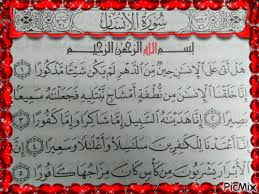 سُورَةُ الْإِنسَانِ
بِسْمِ اللَّهِ الرَّحْمَٰنِ الرَّحِيمِ
هَلْ أَتَىٰ عَلَى الْإِنسَانِ حِينٌ مِّنَ الدَّهْرِ لَمْ يَكُن شَيْئًا مَّذْكُورًا ١
إِنَّا خَلَقْنَا الْإِنسَانَ مِن نُّطْفَةٍ أَمْشَاجٍ نَّبْتَلِيهِ فَجَعَلْنَاهُ سَمِيعًا
بَصِيرًا ٢ إِنَّا هَدَيْنَاهُ السَّبِيلَ إِمَّا شَاكِرًا وَإِمَّا كَفُورًا ٣
إِنَّا أَعْتَدْنَا لِلْكَافِرِينَ سَلَاسِلَا وَأَغْلَالًا وَسَعِيرًا ٤ إِنَّ
الْأَبْرَارَ يَشْرَبُونَ مِن كَأْسٍ كَانَ مِزَاجُهَا كَافُورًا ٥
PicMix